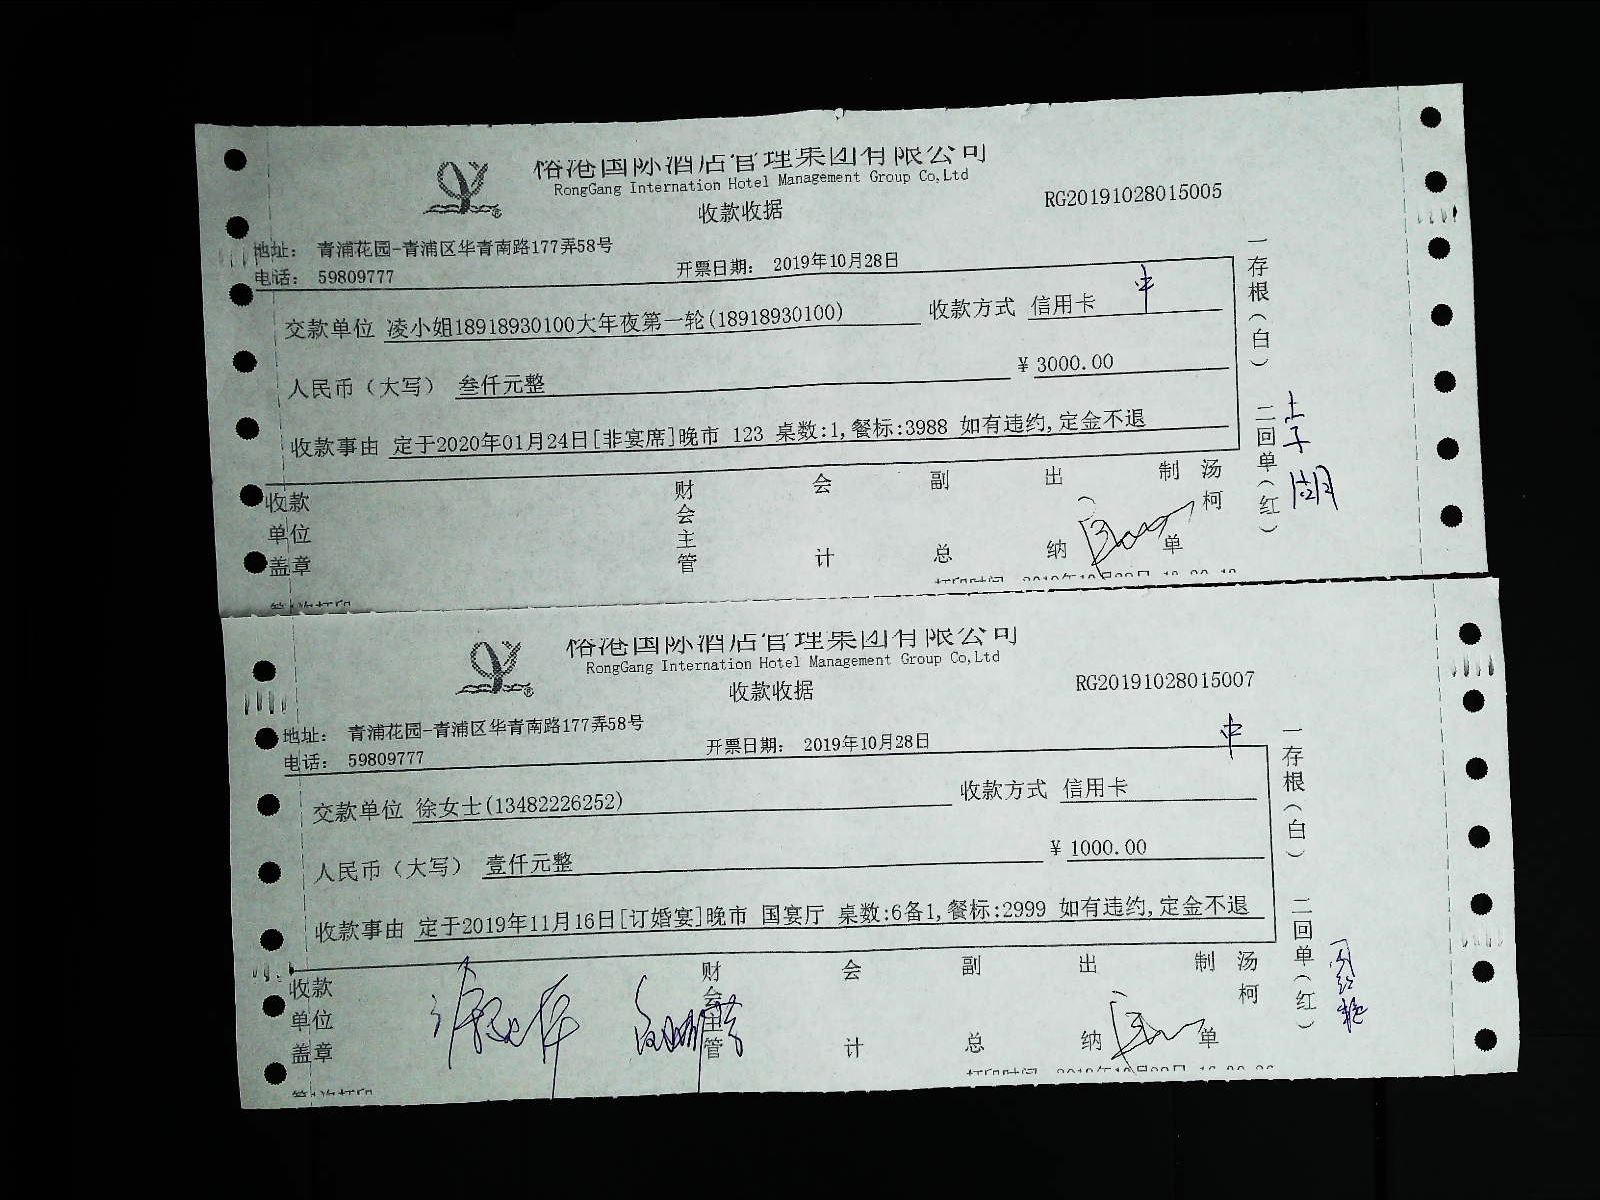 榕港国际酒店管理集团有限公司
RongGang Internation Hotel Management Group Co,Ltd
收款收据
RG20191028015005
地址： 青浦花园-青浦区华青南路177弄58号
电话： 59809777
开票日期： 2019年10月28日
交款单位 凌小姐18918930100大年夜第一轮(18918930100)
收款方式 信用卡 中
人民币（大写） 叁仟元整
¥ 3000.00
收款事由 定于2020年01月24日[非宴席]晚市 123 桌数:1,餐标:3988 如有违约,定金不退
收款单位盖章
财会主管
会计
副总
出纳
制单
汤柯
一存根（白） 二回单（红）
榕港国际酒店管理集团有限公司
RongGang Internation Hotel Management Group Co,Ltd
收款收据
RG20191028015007
地址： 青浦花园-青浦区华青南路177弄58号
电话： 59809777
开票日期： 2019年10月28日
中
交款单位 徐女士(13482226252)
收款方式 信用卡
人民币（大写） 壹仟元整
¥ 1000.00
收款事由 定于2019年11月16日[订婚宴]晚市 国宴厅 桌数:6备1,餐标:2999 如有违约,定金不退
收款单位盖章
财会主管
会计
副总
出纳
制单
汤柯
一存根（白） 二回单（红）